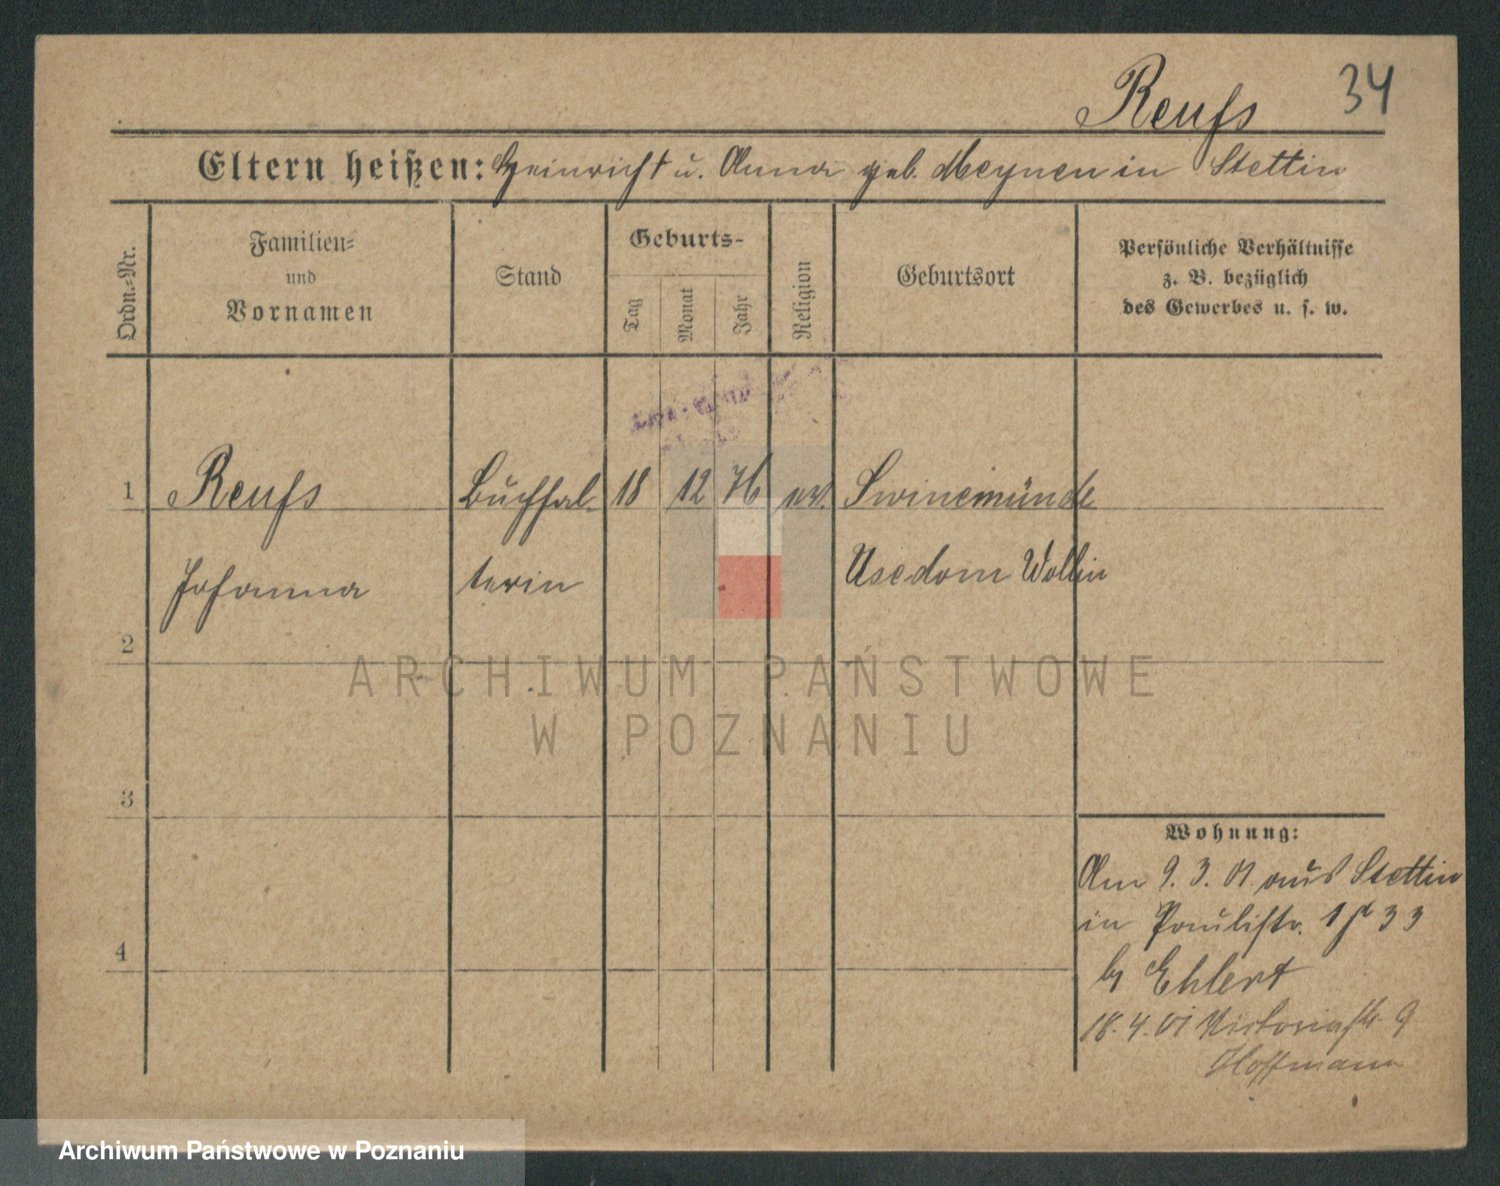 Reuſs 34
Eltern heißen: Heinrich u. Anna geb. Meynen in Stettin
Ordn.-Nr.
Familien-
und
Vornamen
Stand
Geburts-
Tag
Monat
Jahr
Religion
Geburtsort
Persönliche Verhältnisse
z. B. bezüglich
des Gewerbes u. s. w.
1 Reuſs Buchhal- 18 12 76 ev. Swinemünde
Johanna terin Usedom Wollin
2
3
4
Wohnung:
Am 9. 3. 01 aus Stettin
in Paulistr. 33
bei Ehlert
18. 4. 01 Victoriastr. 9
Hoffmann
ARCHIWUM PAŃSTWOWE
W POZNANIU
Archiwum Państwowe w Poznaniu